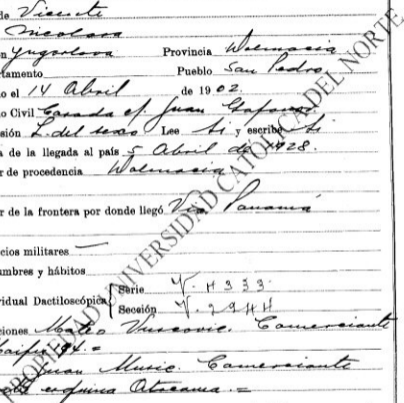 de Vicente
Nicolasa
n Yugoslava Provincia Dalmacia
tamento Pueblo San Pedro
o el 14 Abril de 1902.
o Civil Casada c/. Juan
sión L. del sexo Lee Si y escribe Si
a de la llegada al país 5 Abril de 1928.
r de procedencia Dalmacia
r de la frontera por donde llegó Vía Panamá
cios militares —
umbres y hábitos
vidual Dactiloscópica Serie V. H 333
Sección V. 2944
ciones Mateo Comerciante
Juan Music. Comerciante
esquina Atacama. =
PROPIEDAD UNIVERSIDAD CATOLICA DEL NORTE